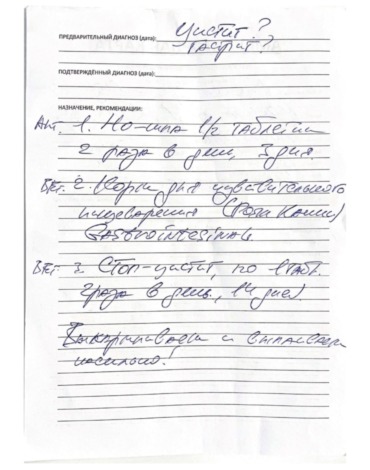 ПРЕДВАРИТЕЛЬНЫЙ ДИАГНОЗ (дата): Цистит?
Гастрит?
ПОДТВЕРЖДЁННЫЙ ДИАГНОЗ (дата):
НАЗНАЧЕНИЕ, РЕКОМЕНДАЦИИ:
Апт. 1. Но-шпа 1/2 таблетки
2 раза в день, 3 дня.
Вет. 2. Корм для чувствительного
пищеварения (Роял Канин)
Gastrointestinal
Вет. 3. Стоп-цистит, по 1 табл.
2 раза в день, 14 дней
Выкармливаем и выпаиваем
насильно!